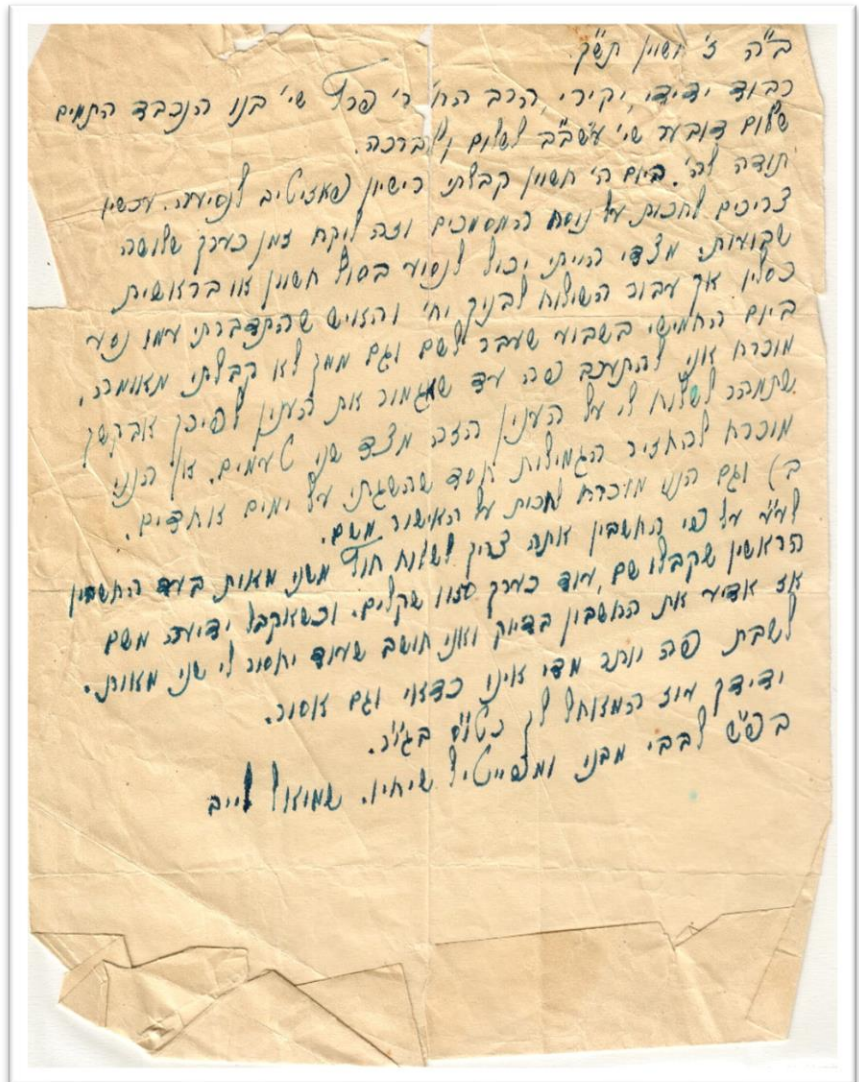 ב"ה ז' חשוון תש"ך
כבוד ידידי, יקירי, הרב הח' ר' פרץ שי' בנו הנכבד התמים
שלום דובער שי' לשלום ולברכה.
תודה לה'. ביום ה' חשוון קבלתי רישיון פאזיטיב לנסיעה. עכשיו
צריכים לחכות על נוסח המסמכים וזה ליקח זמן כערך שלושה
שבועות. מצדי הייתי יכול לנסוע בסוף חשוון או בראשית
כסליו אך עבור השילוח לבניך יחי' והאיש שהתדברתי עמו נסע
ביום החמישי בשבוע שעבר לשם וגם ממך לא קבלתי מאומה,
מוכרח אני להתעכב פה עד שאגמור את הענין לפיכך אבקשך
שתמהר לשלוח לי על הענין הזה מצד שני טעמים. א) הנני
מוכרח להחזיר הגמילות חסד שהשגתי על ימים אחדים.
ב) וגם הנני מוכרח לחכות על האישור משם.
לע"ע על פי החשבון אתה צריך לשלוח חוץ משני מאות בעד החשבון
הראשון שקבלו שם, עוד כערך שקלים. וכשאקבל ידיעה משם
אז אדיע את החשבון בדיוק ואני חושב שעוד יחסור לי שני מאות.
לשבת פה יותר מדי אינו כדאי וגם אסור.
ידידך עוז המאחל לך כט"ס בגו"ר.
בפ"ש לבבי מבני ומפייטיל שיחיו. שמואל לייב